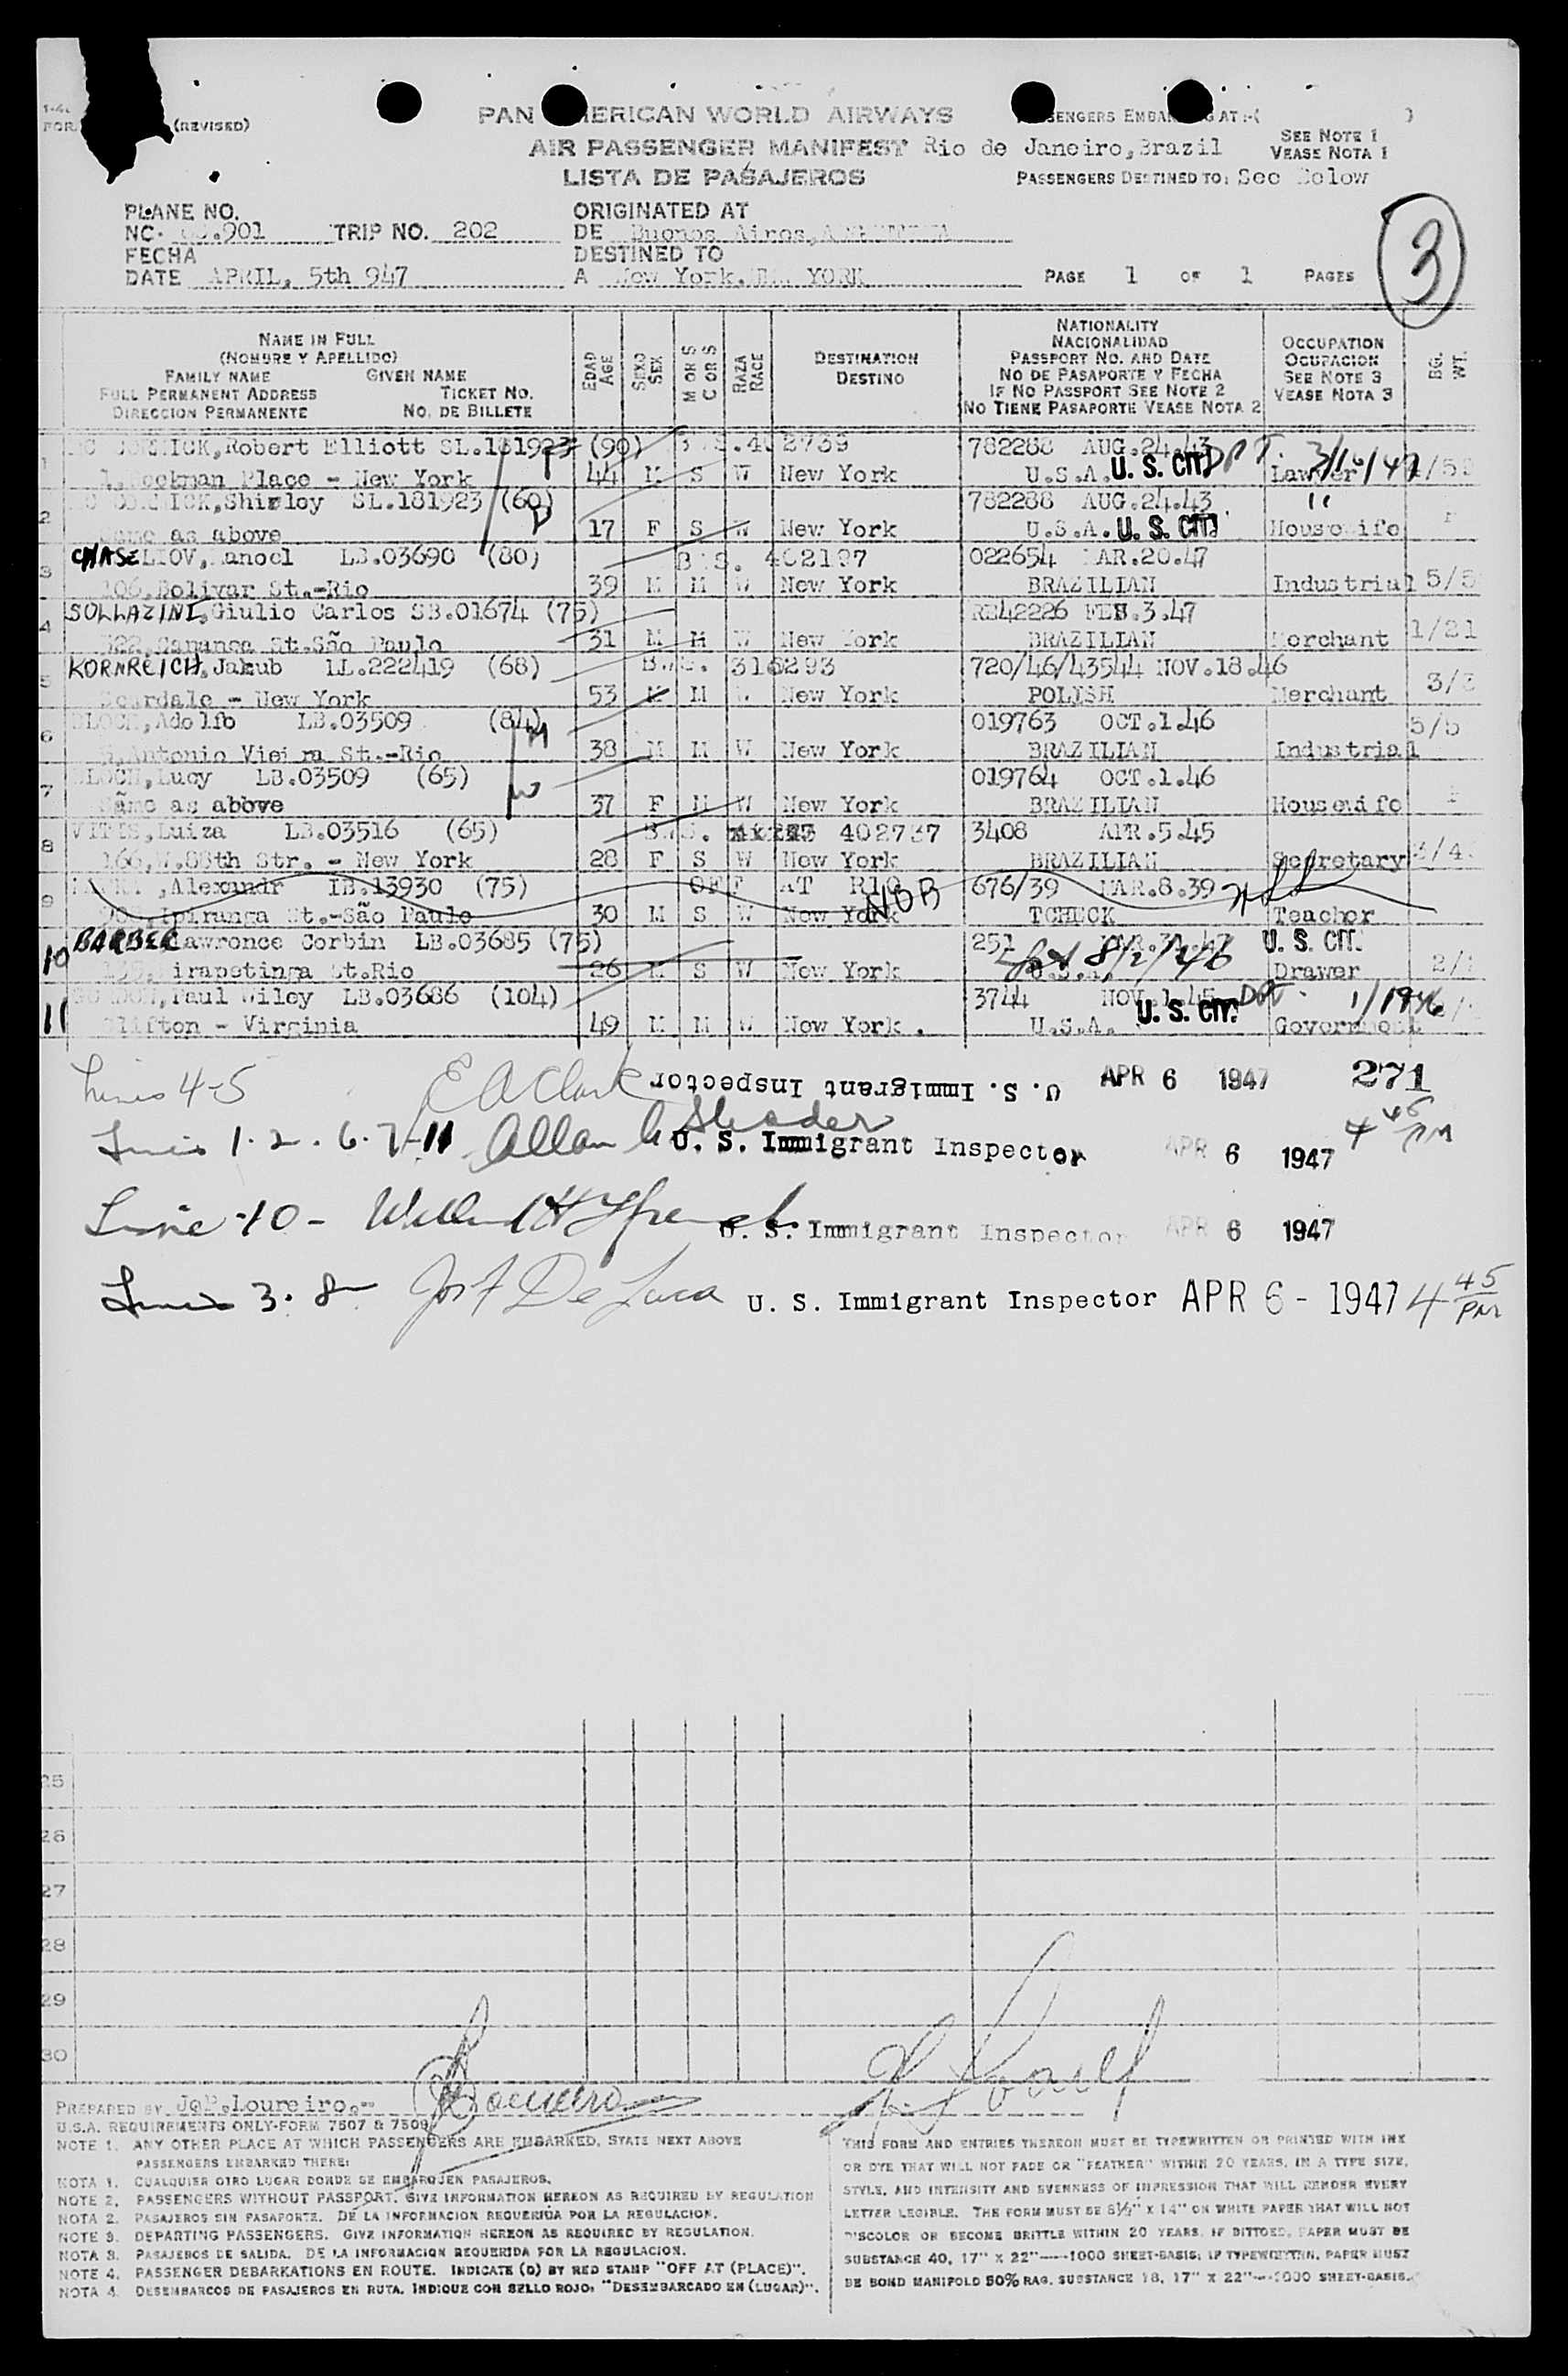 (REVISED)
PAN AMERICAN WORLD AIRWAYS
AIR PASSENGER MANIFEST
LISTA DE PASAJEROS
PASSENGERS EMBARKING AT:-( )
Rio de Janeiro, Brazil
SEE NOTE 1
VEASE NOTA 1
PASSENGERS DESTINED TO: See Below
PLANE NO.
NC- .901 TRIP NO. 202
FECHA
DATE APRIL, 5th 947
ORIGINATED AT
DE Buenos Aires, ARGENTINA
DESTINED TO
A New York, YORK
PAGE 1 OF 1 PAGES
3
NAME IN FULL
(NOMBRE Y APELLIDO)
FAMILY NAME GIVEN NAME
FULL PERMANENT ADDRESS TICKET NO.
DIRECCION PERMANENTE NO. DE BILLETE
EDAD AGE
SEXO SEX
M OR S C OR S
RAZA RACE
DESTINATION
DESTINO
NATIONALITY
NACIONALIDAD
PASSPORT NO. AND DATE
NO DE PASAPORTE Y FECHA
IF NO PASSPORT SEE NOTE 2
NO TIENE PASAPORTE VEASE NOTA 2
OCCUPATION
OCUPACION
SEE NOTE 3
VEASE NOTA 3
BG. WT.
1 ICK, Robert Elliott SL.181923 (90) 402739 782288 AUG.24.43
Place - New York 44 M S W New York U.S.A. U. S. CIT. Lawyer
2 ICK, Shirley SL.181923 (60) 782288 AUG.24.43 "
Same as above 17 F S W New York U.S.A. U. S. CIT. Housewife
3 CHASELIOV, Manoel LB.03690 (80) 402197 022654 MAR.20.47
106, Bolivar St.-Rio 39 M M W New York BRAZILIAN Industrial 5/5
4 SOLLAZINI, Giulio Carlos SB.01674 (75) RE42226 FEB.3.47
St. São Paulo 31 M M W New York BRAZILIAN Merchant 1/21
5 KORNREICH, Jakub LL.222419 (68) 316293 720/46/43544 NOV.18.46
Scardale - New York 53 M M W New York POLISH Merchant 3/3
6 BLOCH, Adolfo LB.03509 (84) M 019763 OCT.1.46 5/5
Antonio Vieira St.-Rio 38 M M W New York BRAZILIAN Industrial
7 BLOCH, Lucy LB.03509 (65) W 019764 OCT.1.46
Same as above 37 F M W New York BRAZILIAN Housewife
8 Luiza LB.03516 (65) 402737 3408 APR.5.45
166, W.88th Str. - New York 28 F S W New York BRAZILIAN Secretary
9 Alexandr IB.13930 (75) OFF AT RIO NOB 676/39 MAR.8.39
Ipiranga St.-São Paulo 30 M S W New York TCHECK Teacher
10 BARBER Lawrence Corbin LB.03685 (75) 251 MAR.31.47 U. S. CIT.
Pirapetinga St.Rio 26 M S W New York U.S.A. Drawer
11 Paul Wiley LB.03686 (104) 3744 NOV.1.45
Clifton - Virginia 49 M M W New York. U.S.A. U. S. CIT. Government
Lines 4-5 E A Clark U. S. Immigrant Inspector APR 6 1947 271
Lines 1. 2. 6. 7-11 Allan U. S. Immigrant Inspector APR 6 1947 4 45 PM
Line -10- U. S. Immigrant Inspector APR 6 1947
Lines 3. 8 Jos F De Luca U. S. Immigrant Inspector APR 6 - 1947 4 45 PM
25
26
27
28
29
30
PREPARED BY J.P.Loureiro.-
U.S.A. REQUIREMENTS ONLY-FORM 7507 & 7509
NOTE 1. ANY OTHER PLACE AT WHICH PASSENGERS ARE EMBARKED, STATE NEXT ABOVE
PASSENGERS EMBARKED THERE:
NOTA 1. CUALQUIER OTRO LUGAR DONDE SE EMBARQUEN PASAJEROS.
NOTE 2. PASSENGERS WITHOUT PASSPORT. GIVE INFORMATION HEREON AS REQUIRED BY REGULATION
NOTA 2. PASAJEROS SIN PASAPORTE. DE LA INFORMACION REQUERIDA POR LA REGULACION.
NOTE 3. DEPARTING PASSENGERS. GIVE INFORMATION HEREON AS REQUIRED BY REGULATION.
NOTA 3. PASAJEROS DE SALIDA. DE LA INFORMACION REQUERIDA POR LA REGULACION.
NOTE 4. PASSENGER DEBARKATIONS EN ROUTE. INDICATE (D) BY RED STAMP "OFF AT (PLACE)".
NOTA 4. DESEMBARCOS DE PASAJEROS EN RUTA. INDIQUE CON SELLO ROJO: "DESEMBARCADO EN (LUGAR)".
THIS FORM AND ENTRIES THEREON MUST BE TYPEWRITTEN OR PRINTED WITH INK
OR DYE THAT WILL NOT FADE OR "FEATHER" WITHIN 20 YEARS, IN A TYPE SIZE,
STYLE, AND INTENSITY AND EVENNESS OF IMPRESSION THAT WILL RENDER EVERY
LETTER LEGIBLE. THE FORM MUST BE 8½" X 14" ON WHITE PAPER THAT WILL NOT
DISCOLOR OR BECOME BRITTLE WITHIN 20 YEARS. IF DITTOED, PAPER MUST BE
SUBSTANCE 40, 17" X 22"—1000 SHEET-BASIS; IF TYPEWRITTEN, PAPER MUST
BE BOND MANIFOLD 50% RAG, SUBSTANCE 18, 17" X 22"—1000 SHEET-BASIS.